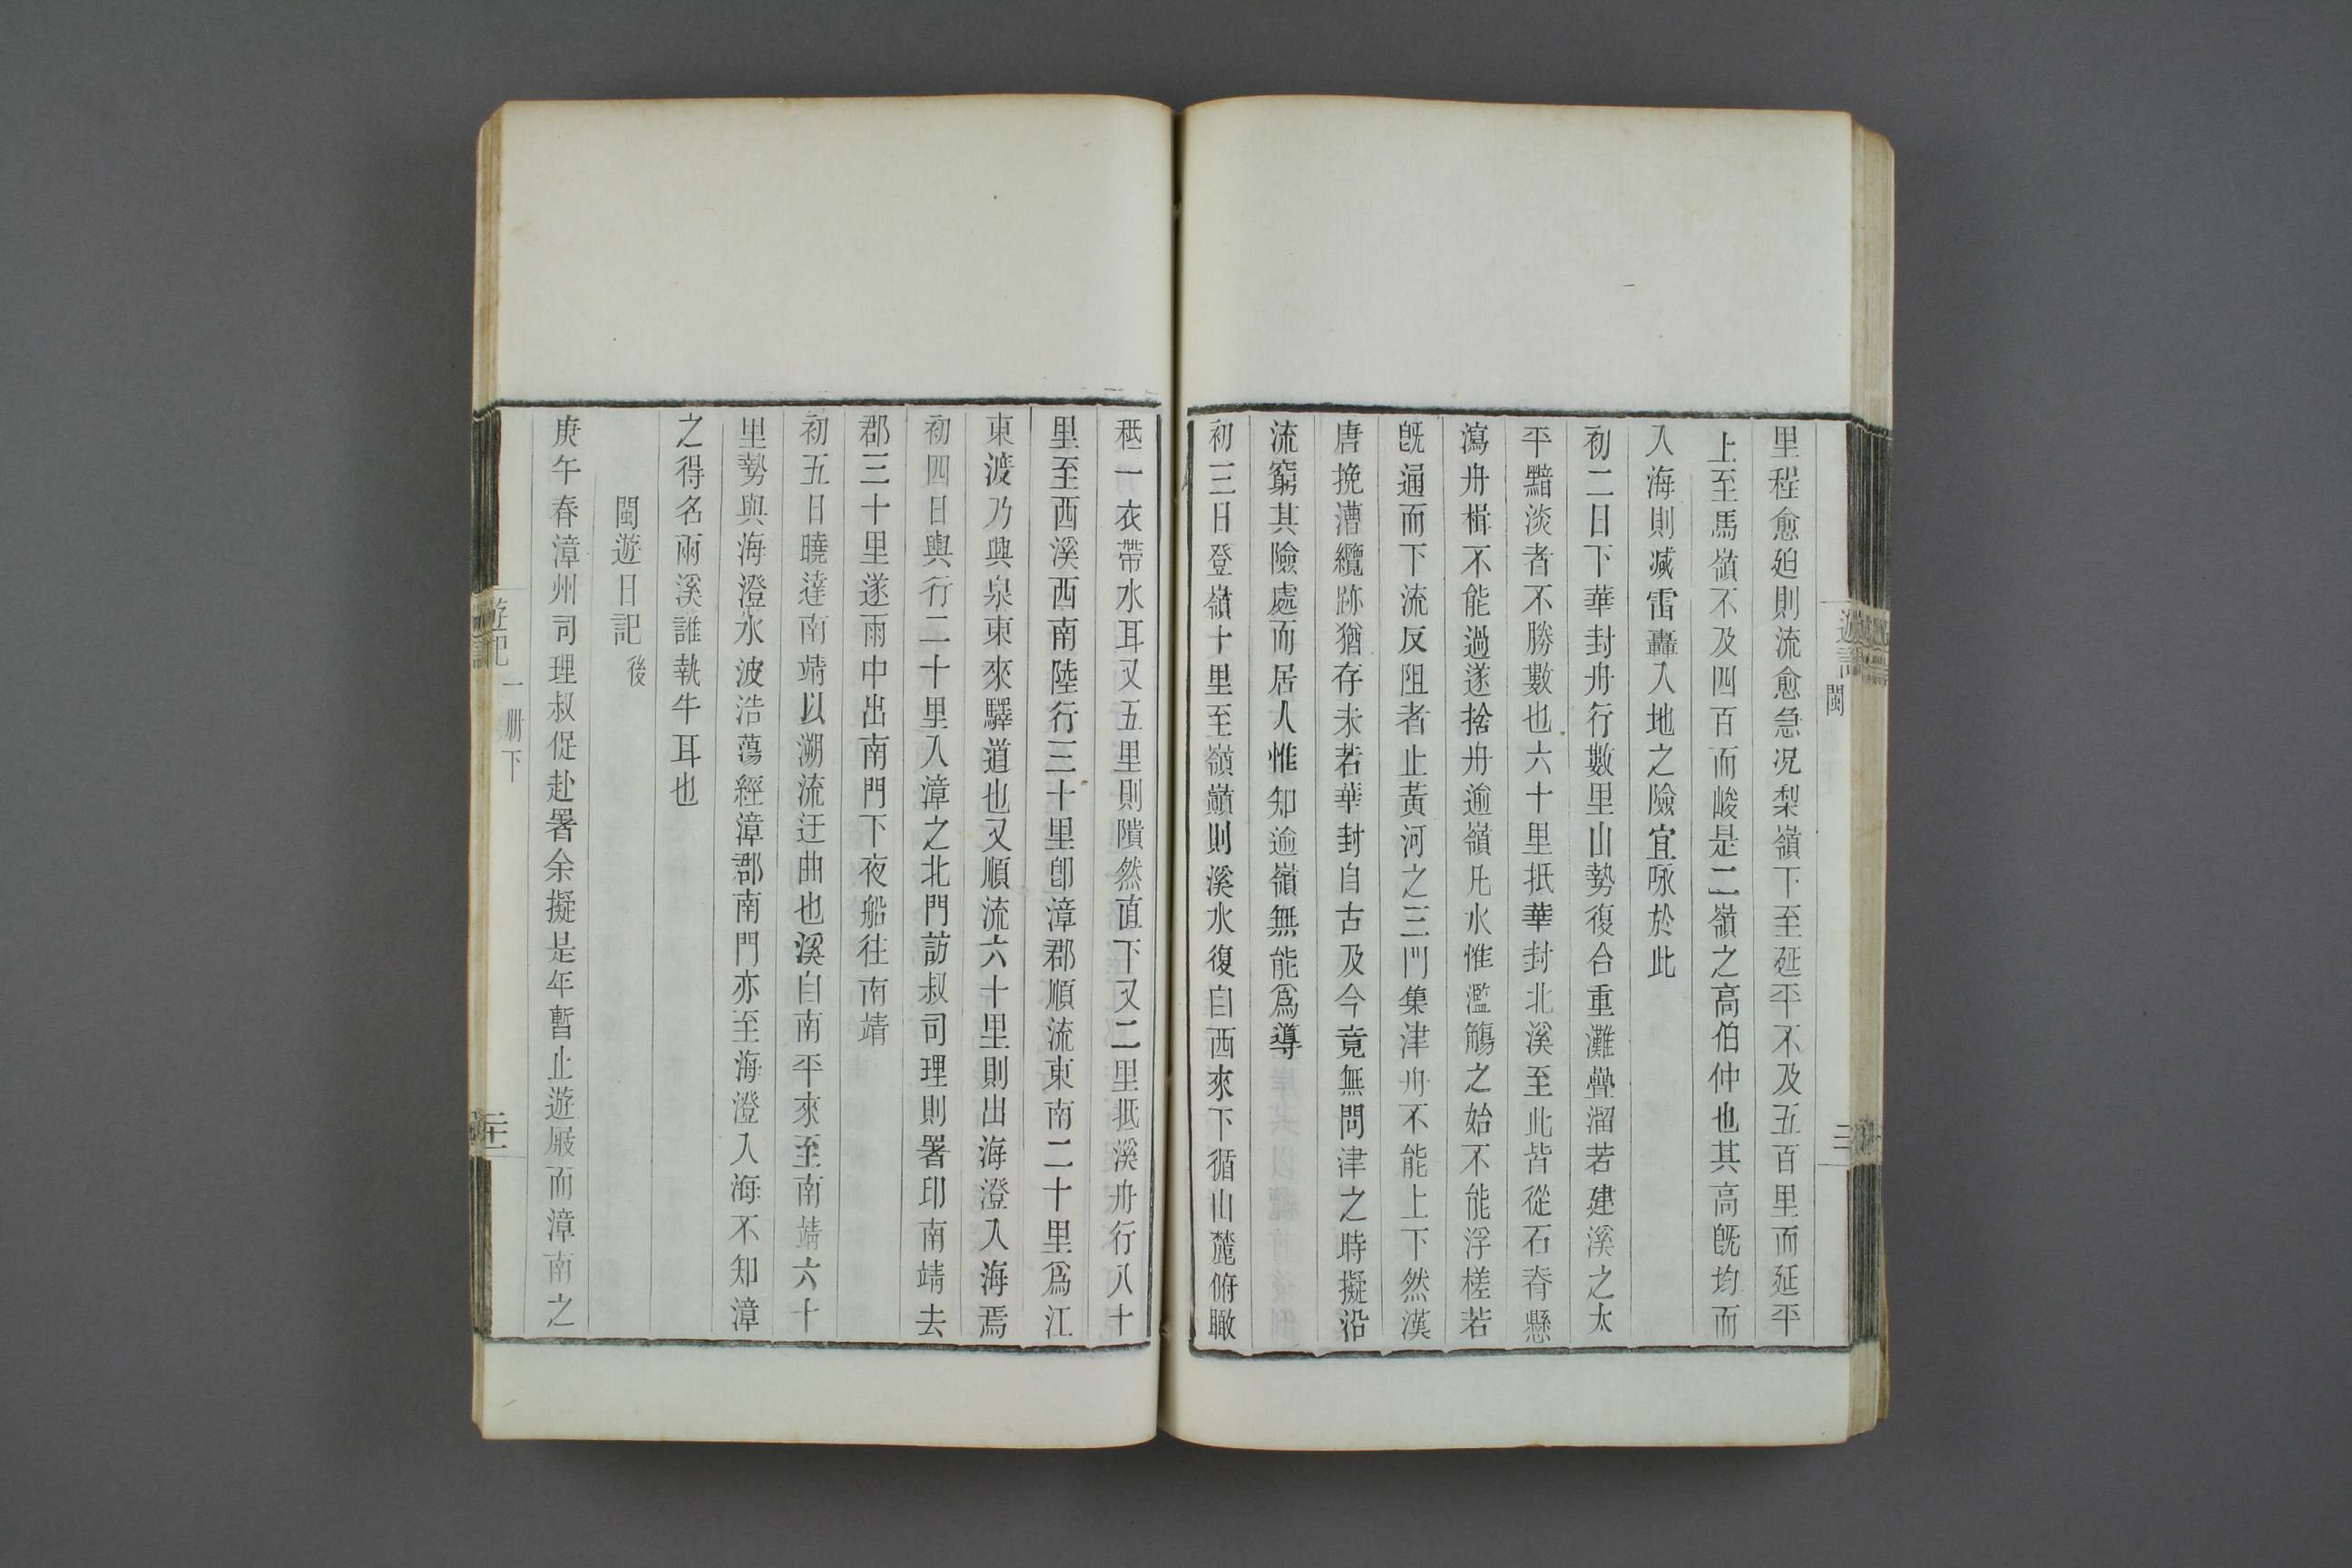 里程愈廹則流愈急況梨嶺下至延平不及五百里而延平
上至馬嶺不及四百而峻是二嶺之高伯仲也其高既均而
入海則減雷轟入地之險宜咏於此
初二日下華封舟行數里山勢復合重灘疊溜若建溪之太
平黯淡者不勝數也六十里抵華封北溪至此皆從石脊懸
瀉舟楫不能過遂捨舟逾嶺凡水惟濫觴之始不能浮槎若
既通而下流反阻者止黃河之三門集津舟不能上下然漢
唐挽漕纜跡猶存未若華封自古及今竟無問津之時擬沿
流窮其險處而居人惟知逾嶺無能爲導
初三日登嶺十里至嶺巔則溪水復自西來下循山麓俯瞰
秪一衣帶水耳又五里則隤然直下又二里抵溪舟行八十
里至西溪西南陸行三十里卽漳郡順流東南二十里爲江
東渡乃興泉東來驛道也又順流六十里則出海澄入海焉
初四日輿行二十里入漳之北門訪叔司理則署印南靖去
郡三十里遂雨中出南門下夜船往南靖
初五日曉達南靖以溯流迂曲也溪自南平來至南靖六十
里勢與海澄水波浩蕩經漳郡南門亦至海澄入海不知漳
之得名兩溪誰執牛耳也
閩遊日記後
庚午春漳州司理叔促赴署余擬是年暫止遊屐而漳南之
遊記
一冊下
遊記
閩